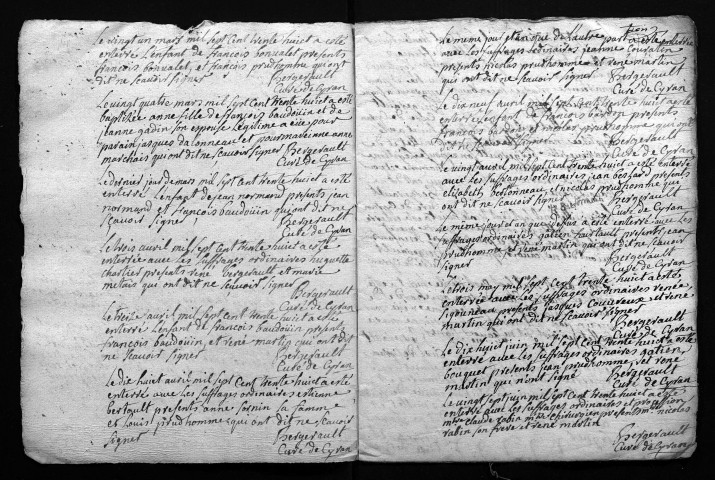 le vingt un mars mil sept cent trente huiet a esté
enterré L'enfant de françois bonvalet presents
françois bonvalet, et françois prudhomme qui ont
dit ne scavoir signer
Bergerault
Curé de Cyran
Le vingt quatre mars mil sept cent trente huiet a esté
baptisée anne fille de françois baudouin et de
jeanne gadin son epouse Legitime a eue pour
parain jasques daonneau et pour maraine anne
marchais qui ont dit ne scavoir signer Bergerault
Curé de Cyran
Le dernier jour de mars mil sept cent trente huiet a esté
enterré L'enfant de jean normand presents jean
normand et françois baudouin qui ont dit ne
scavoir signer
Bergerault
Curé de Cyran
Le trois avril mil sept cent trente huiet a esté
enterrée avec Les suffrages ordinaires huguette
charlier presents rené bergerault et marie
metais qui ont dit ne scavoir signer
Bergerault
Curé de Cyran
Le treize avril mil sept cent trente huiet a esté
enterré L'enfant de françois baudouin presents
françois baudouin, et rené martin qui ont dit
ne scavoir signer
Bergerault
Curé de Cyran
Le dix huiet avril mil sept cent trente huiet a esté
enterré avec Les suffrages ordinaires estienne
bertault presents anne sornin sa famme
et Louis prudhomme qui ont dit ne scavoir
signer
Bergerault
Curé de Cyran
Le meme jour et an que de l'autre part a esté enterrée
avec Les suffrages ordinaires jeanne
presents nicolas prudhomme et rené martin
qui ont dit ne scavoir signer
Bergerault
Curé de Cyran
Le dix neuf avril mil sept cent trente huiet a esté
enterré L'enfant de françois
presents
françois et nicolas prudhomme qui ont
dit ne scavoir signer
Bergerault
Curé de Cyran
Le vingt avril mil sept cent trente huiet a esté enterré
avec Les suffrages ordinaires jean presents
elizabeth bertonneau et nicolas prudhomme qui
ont dit ne scavoir signer
Bergerault
Curé de Cyran
Le meme jour et an que dessus a esté enterré avec Les
suffrages ordinaires gatien presents jean
prudhomme et rené martin qui ont dit ne scavoir
signer
Bergerault
Curé de Cyran
Le trois may mil sept cent trente huiet a esté
enterrée avec Les suffrages ordinaires renée
sigonneau presents jasques et rené
martin qui ont dit ne scavoir signer
Bergerault
Curé de Cyran
Le dix huiet juin mil sept cent trente huiet a esté
enterré avec Les suffrages ordinaires gatien
bouquet presents jean prudhomme, et rené
martin qui n'ont signé
Bergerault
Curé de Cyran
Le vingt sept juin mil sept cent trente huiet a esté
enterré avec Les suffrages ordinaires et
claude rabin chirurgien presents nicolas
rabin son frere et rené martin
Bergerault
Curé de Cyran